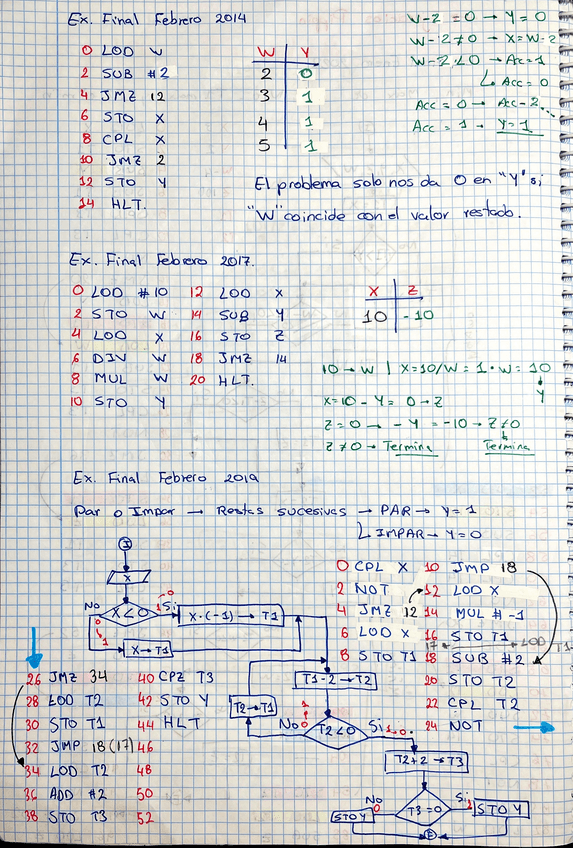 Ex. Final Febrero 2014
0 LOD W
2 SUB #2
4 JMZ 12
6 STO X
8 CPL X
10 JMZ 2
12 STO Y
14 HLT.
W Y
2 0
3 1
4 1
5 1
W-2 = 0 → Y = 0
W-2≠0 → X=W-2
W-2<0 → Acc=1
↳ Acc=0
Acc = 0 → Acc-2...
Acc = 1 → Y=1
El problema solo nos da 0 en "Y" si
"W" coincide con el valor restado.
Ex. Final Febrero 2017.
0 LOD #10 12 LOD X
2 STO W 14 SUB Y
4 LOD X 16 STO Z
6 DIV W 18 JMZ 14
8 MUL W 20 HLT.
10 STO Y
X Z
10 -10
10 → W | X=10/W = 1·W = 10
Y
X=10 - Y = 0 → Z
Z=0 → -Y = -10 → Z≠0
Z≠0 → Termina Termina
Ex. Final Febrero 2019
Par o Impar → Restas sucesivas → PAR → Y=1
↳ IMPAR → Y=0
I
X
No X<0 Si
1 0
0 1
X·(-1) → T1
X→T1
T1-2 → T2
T2→T1
No T2<0 Si
T2+2 → T3
No T3=0 Si
STO Y STO Y
F
0 CPL X 10 JMP 18
2 NOT 12 LOD X
4 JMZ 12 14 MUL #-1
6 LOD X 16 STO T1
17 LOD T1
8 STO T1 18 SUB #2
20 STO T2
22 CPL T2
24 NOT
26 JMZ 34 40 CPZ T3
28 LOD T2 42 STO Y
30 STO T1 44 HLT
32 JMP 18 (17) 46
34 LOD T2 48
36 ADD #2 50
38 STO T3 52